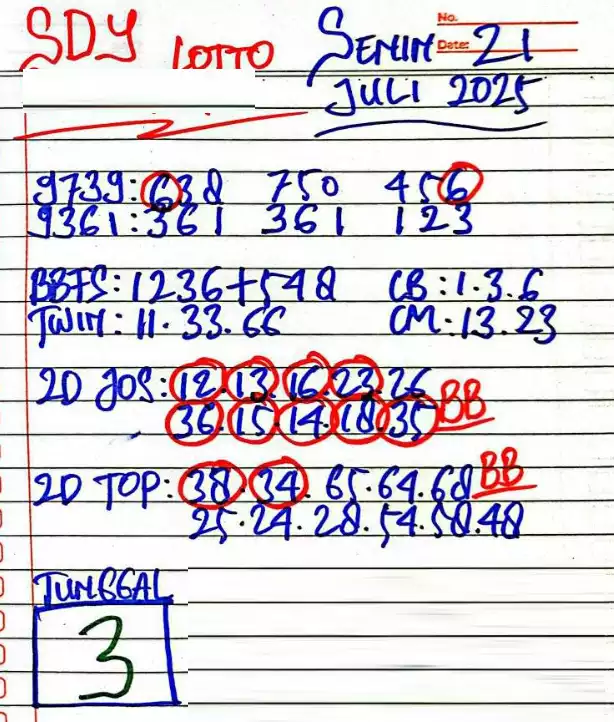 SDY LOTTO SENIN No. 21
Date:
JULI 2025
9739:638 750 456
9361:361 361 123
BBFS:1236+548 CB:1.3.6
TWIN:11.33.66 CM:13.23
2D JOS:12.13.16.23.26
36.15.14.18.35 BB
2D TOP:38.34.65.64.68 BB
25.24.28.54.58.48
TUNGGAL
3